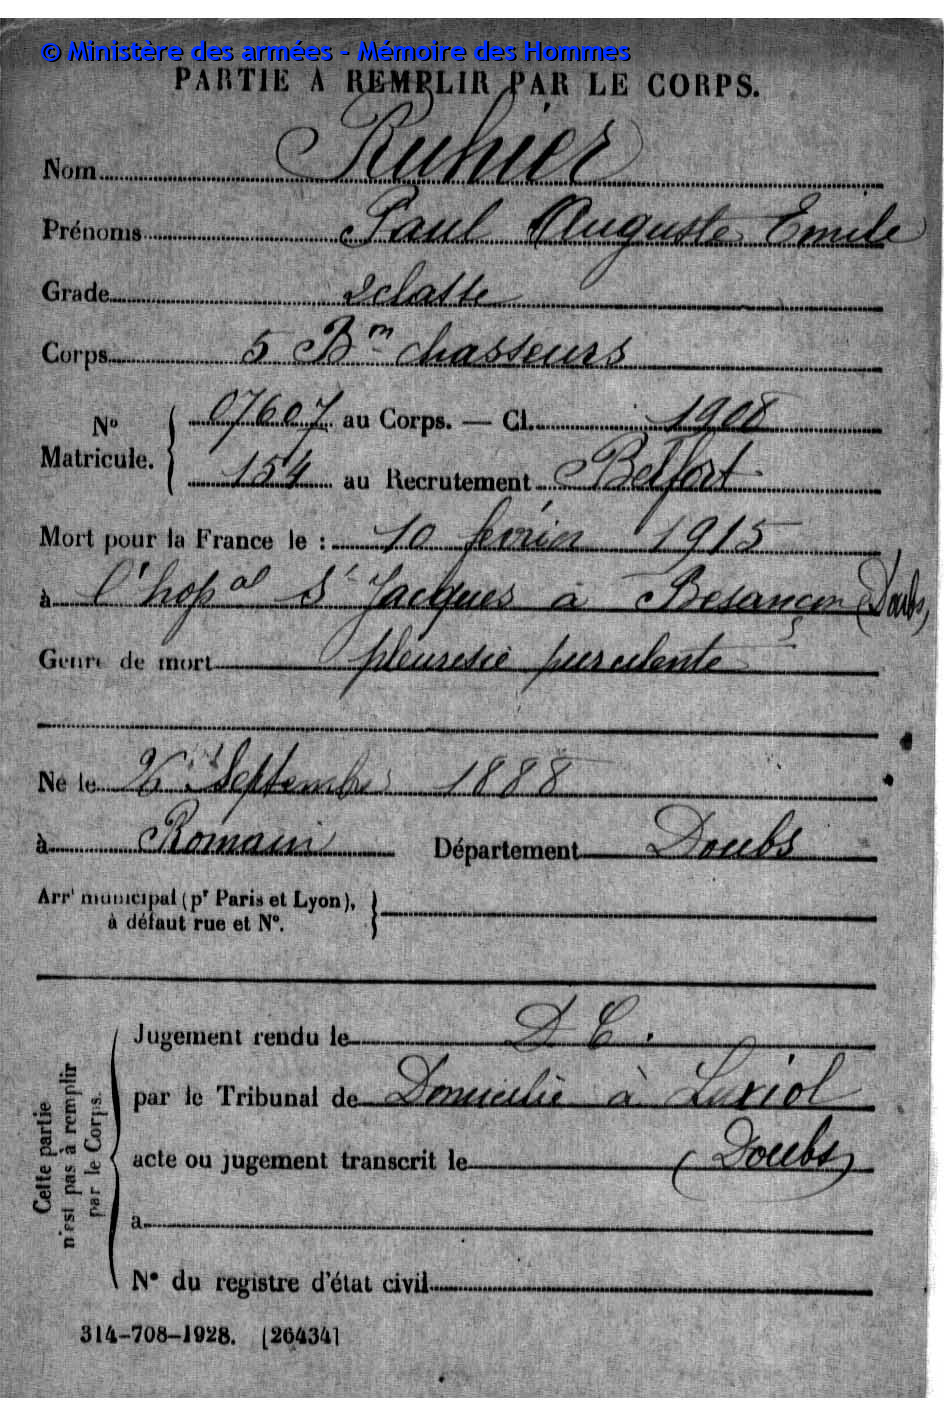 © Ministère des armées - Mémoire des Hommes
PARTIE A REMPLIR PAR LE CORPS.
Nom Ruhier
Prénoms Paul Auguste Emile
Grade 2 classe
Corps 5 Bon chasseurs
No Matricule. { 07607 au Corps. — Cl. 1908
154 au Recrutement Belfort
Mort pour la France le : 10 février 1915
à l'hopal St Jacques à Besançon (Doubs)
Genre de mort pleuresie purulente
Né le 26 Septembre 1888
à Romain Département Doubs
Arrt municipal (pr Paris et Lyon), à défaut rue et No. }
Cette partie n'est pas à remplir par le Corps.
Jugement rendu le D C.
par le Tribunal de Domicilié à Luxiol
acte ou jugement transcrit le (Doubs)
a
No du registre d'état civil
314-708-1928. [26434]